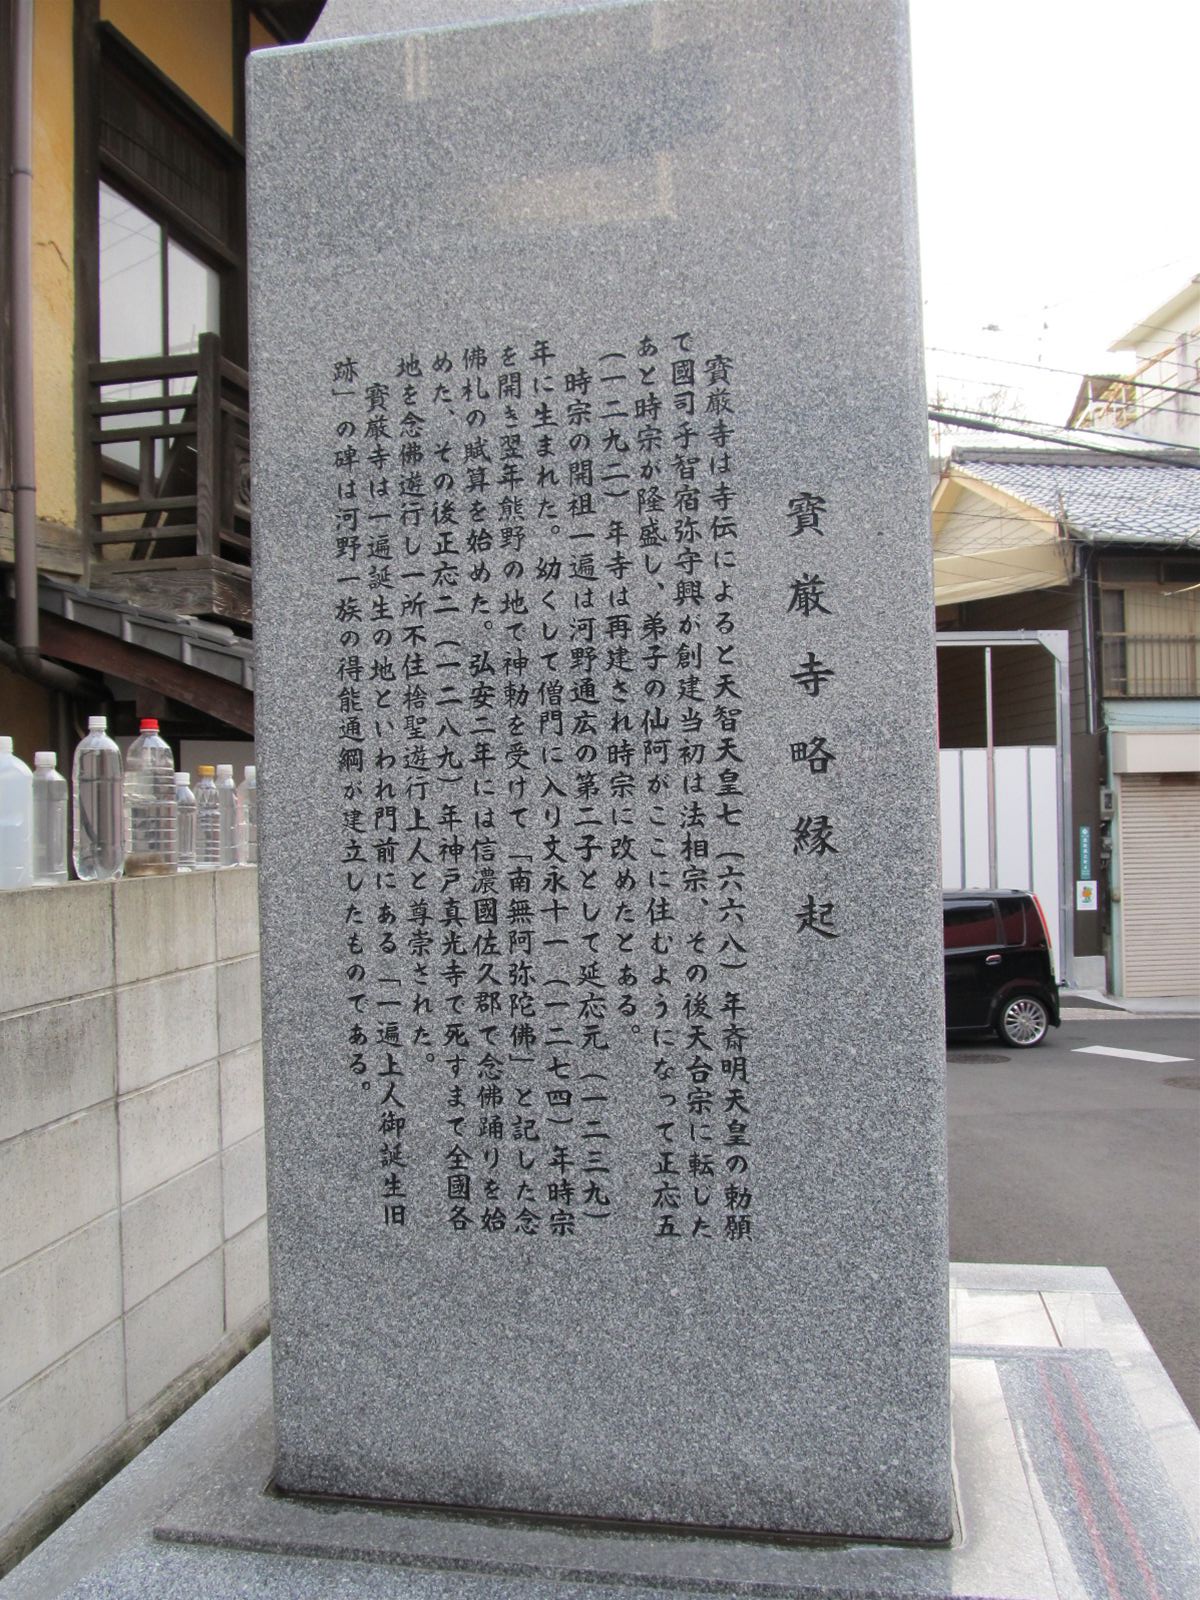 寳厳寺略縁起
寳厳寺は寺伝によると天智天皇七（六六八）年斎明天皇の勅願
で國司乎智宿弥守興が創建当初は法相宗、その後天台宗に転した
あと時宗が隆盛し、弟子の仙阿がここに住むようになって正応五
（一二九二）年寺は再建され時宗に改めたとある。
時宗の開祖一遍は河野通広の第二子として延応元（一二三九）
年に生まれた。幼くして僧門に入り文永十一（一二七四）年時宗
を開き翌年熊野の地で神勅を受けて「南無阿弥陀佛」と記した念
佛札の賦算を始めた。弘安二年には信濃國佐久郡で念佛踊りを始
めた、その後正応二（一二八九）年神戸真光寺で死すまで全國各
地を念佛遊行し一所不住捨聖遊行上人と尊崇された。
寳厳寺は一遍誕生の地といわれ門前にある「一遍上人御誕生旧
跡」の碑は河野一族の得能通綱が建立したものである。